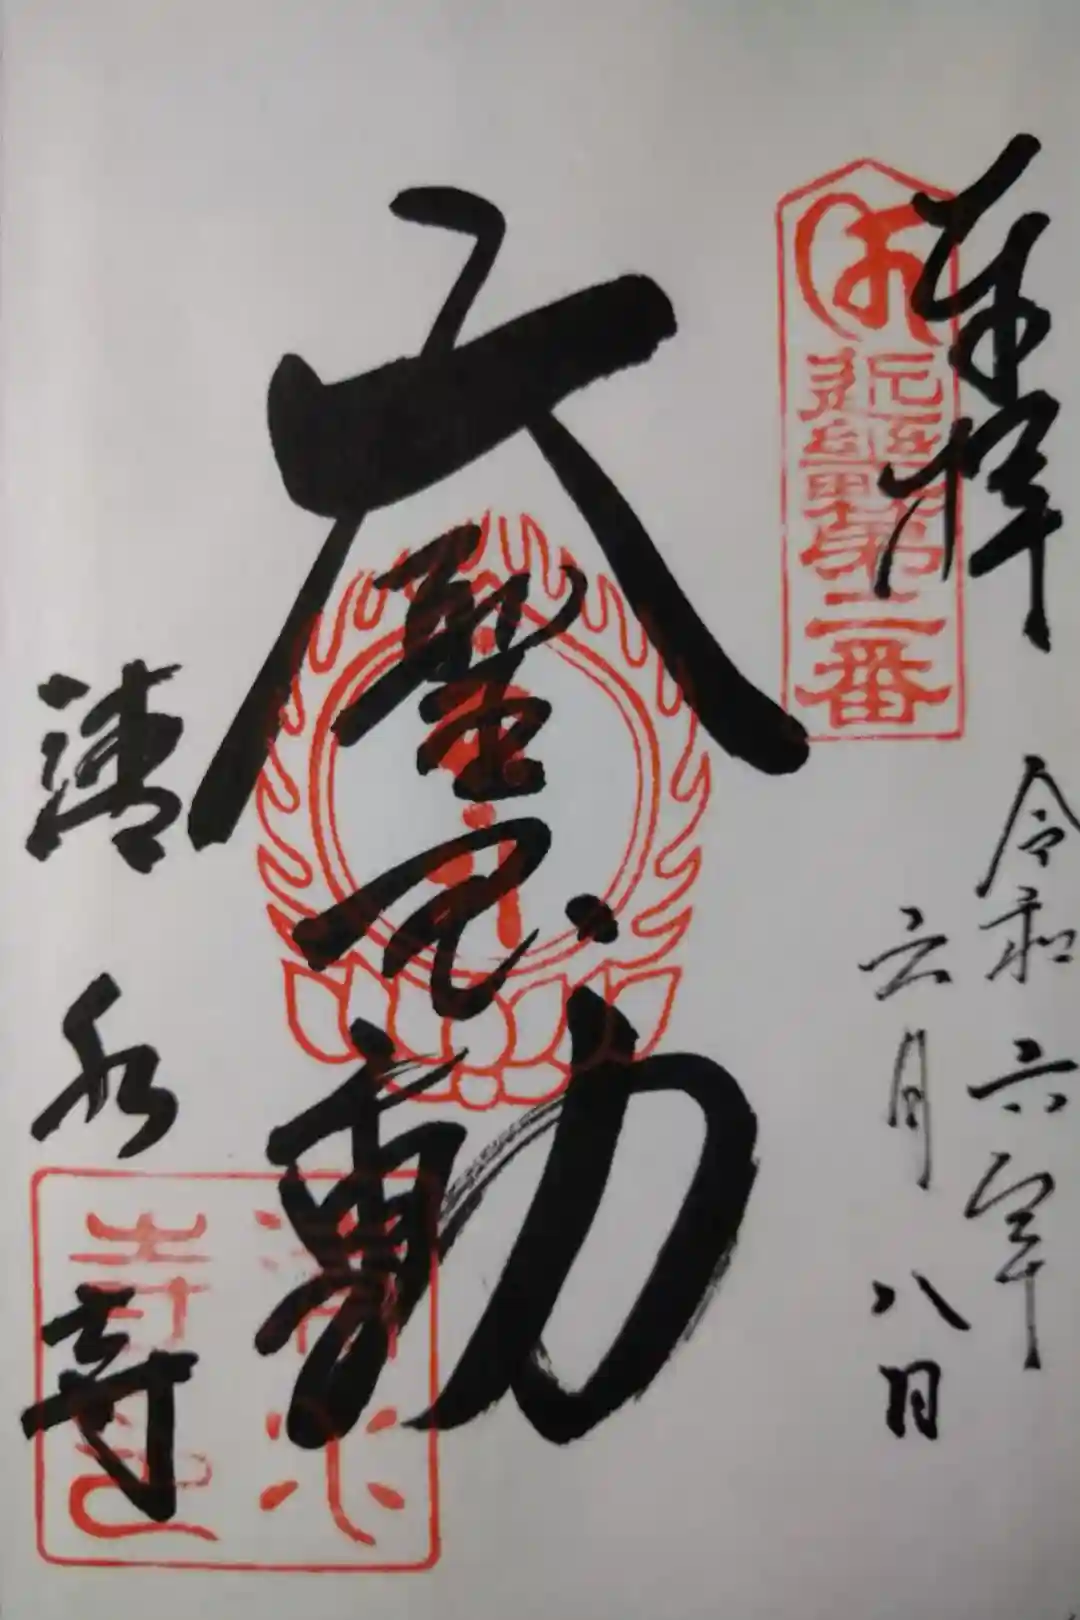 奉拝
令和六年
六月八日
近畿第二番
大聖不動
清水寺
清水寺